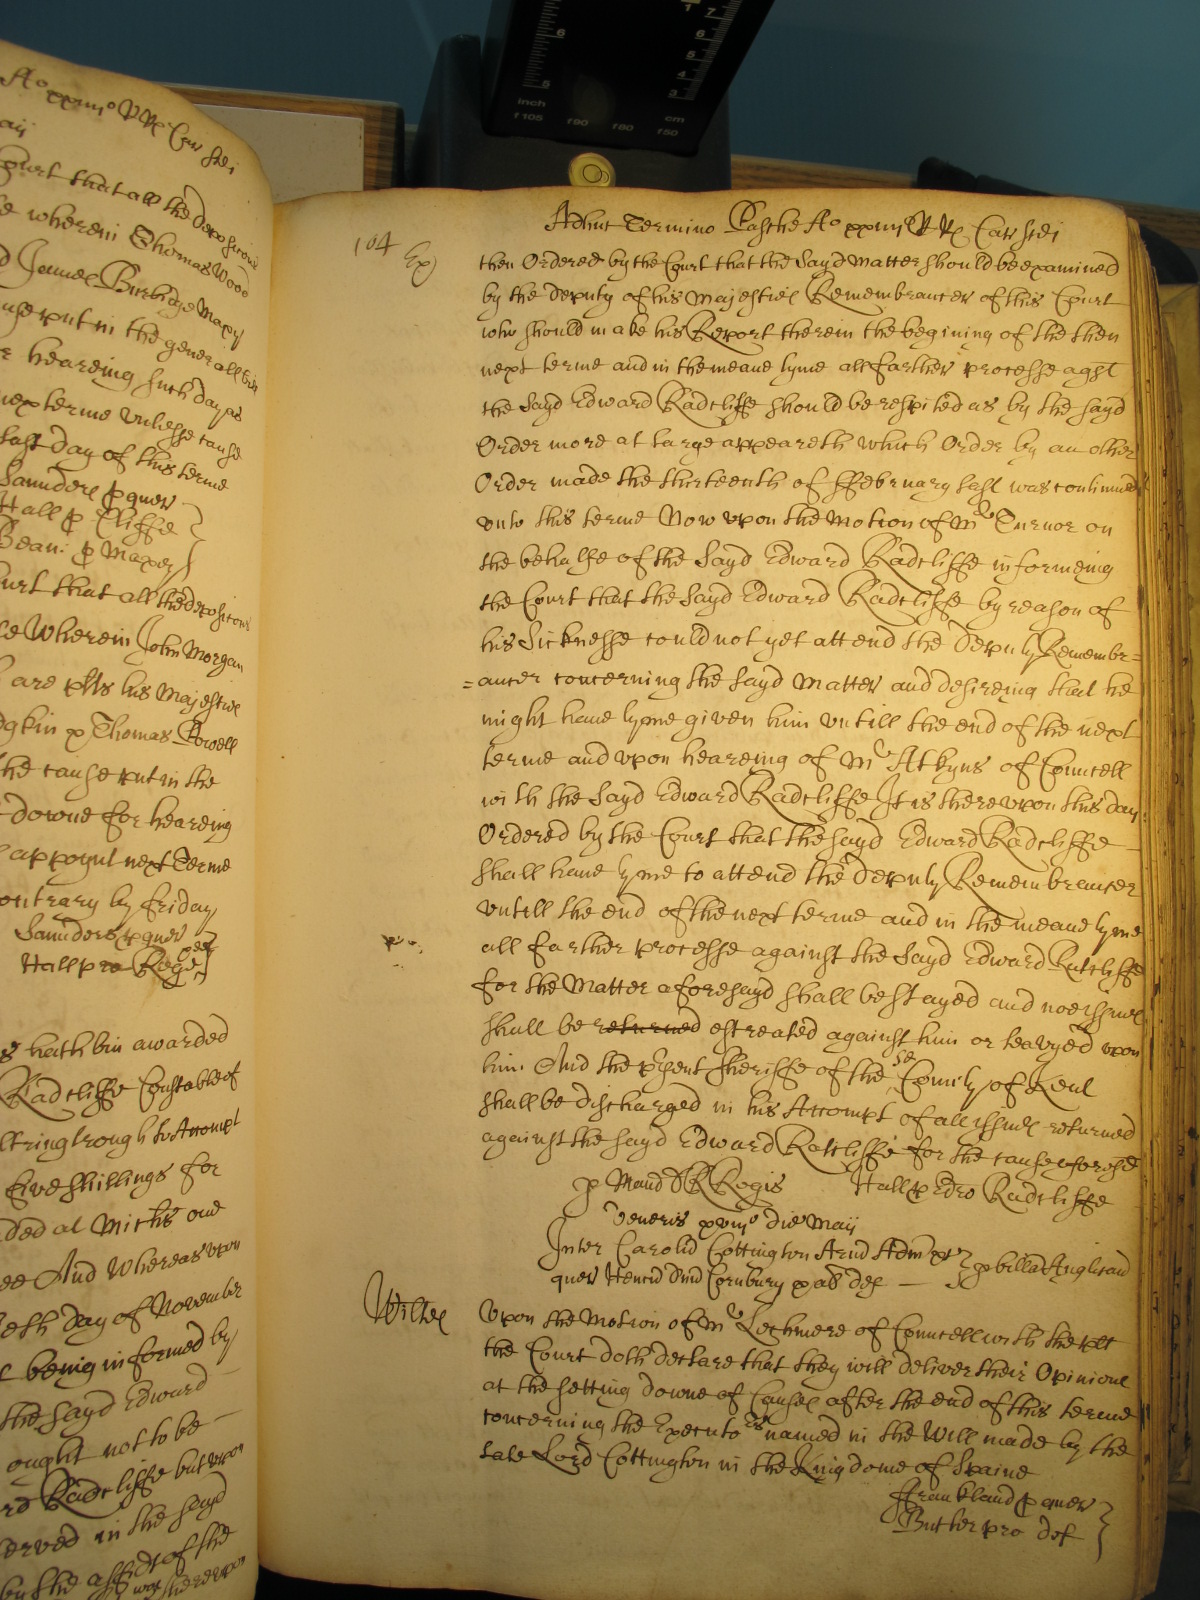 Ao xxiiijo R Rs Car scdi
aij
Court that all the deposicons
e wherein Thomas Wood
d James Burbidge Maxy
use put in the generall
r heareing such day as
next terme unlesse cause
last day of this terme
Saunders p quer
Hall p Cliffe
Bean: p Maxey
ourt that all the deposicons
ce Wherein John Morgan
l are plts his Majesties
dgkin & Thomas Powell
the cause put in the
downe for heareing
l appoynt next Terme
ontrary by friday
Saunders p quer
Hall pro
s hath bin awarded
Radcliffe Constable of
to Accompt
five shillings for
ded at Michis one
ee And Whereas upon
eth day of November
t being informed by
the sayd Edward
ought not to be
rd Radcliffe but upon
erved in the sayd
by the affidt of the
was thereupon
inch
cm
5
6
7
1
3
4
5
6
r105 r90 r80 r50
Adhuc Termino Pasche Ao xxiiijo R Rs Car scdi
104 Ex)
then Ordered by the Court that the Sayd Matter should be examined
by the deputy of his Majesties Remembrancer of this Court
who should make his Report therein the begining of the then
next terme and in the meane tyme all farther processe agst
the Sayd Edward Radcliffe should be respited as by the sayd
Order more at large appeareth which Order by an other
Order made the thirteenth of ffebruary last was continued
unto this terme Now upon the Motion of Mr Turnor on
the behalfe of the Sayd Edward Radcliffe informeing
the Court that the Sayd Edward Radcliffe by reason of
his Sicknesse could not yet attend the Deputy Remembr=
=ancer concerning the Sayd Matter and desireing that he
might have tyme given him untill the end of the next
terme and upon heareing of Mr Atkyns of Councell
with the Sayd Edward Radcliffe It is thereupon this day
Ordered by the Court that the sayd Edward Radcliffe
shall have tyme to attend the Deputy Remembrancer
untill the end of the next terme and in the meane tyme
all farther processe against the Sayd Edward Ratcliffe
for the Matter aforesayd shall be stayed and noe issues
shall be returned estreated against him or leavyed upon
him And the psent Sheriffe of the sd County of Kent
shall be discharged in his Accompt of all issues returned
against the sayd Edward Ratcliffe for the cause aforesd
p Maud R Regis Hall p Edro Radcliffe
Veneris xviijo die Maij
Inter Carolu Cottington Armd Adm &c
quer Henrid Dnd Cornbury & als des
p billa Anglicand
Wiltes
Upon the Motion of Mr Lechmere of Councell with the plt
the Court doth declare that they will deliver their Opinions
at the setting downe of Causes after the end of this terme
concerning the Executors named in the Will made by the
late Lord Cottington in the Kingdome of Spaine
Frankland p quer
Butler pro def